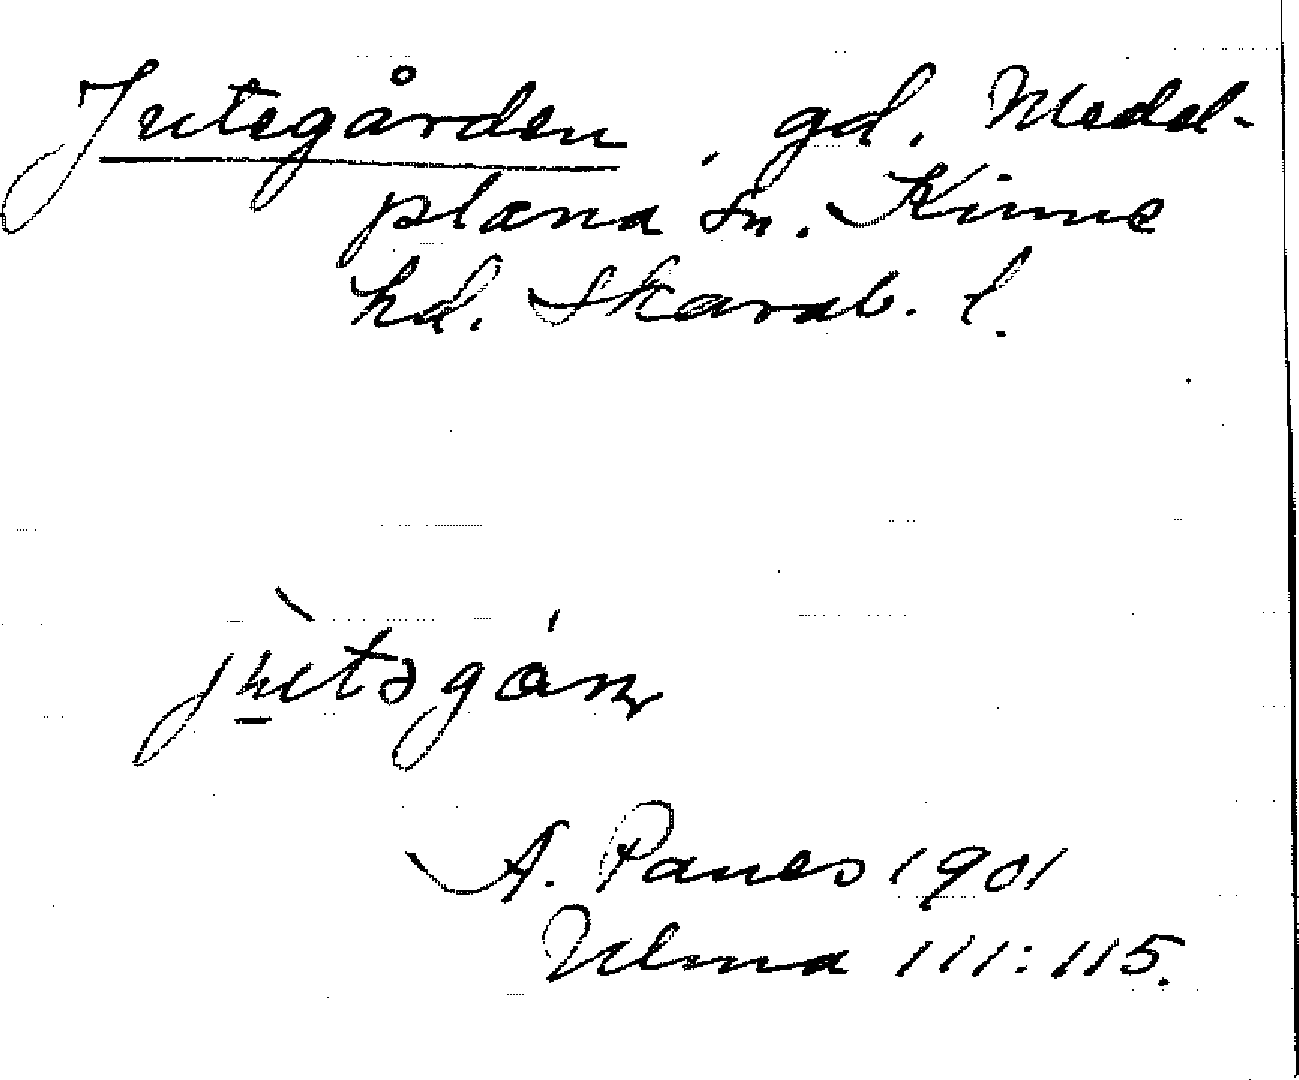 Jutegården, gd. Medel-
plana sn. Kinne
hd. Skarab. l.
A. Ranes 1901
Ulma 111:115.